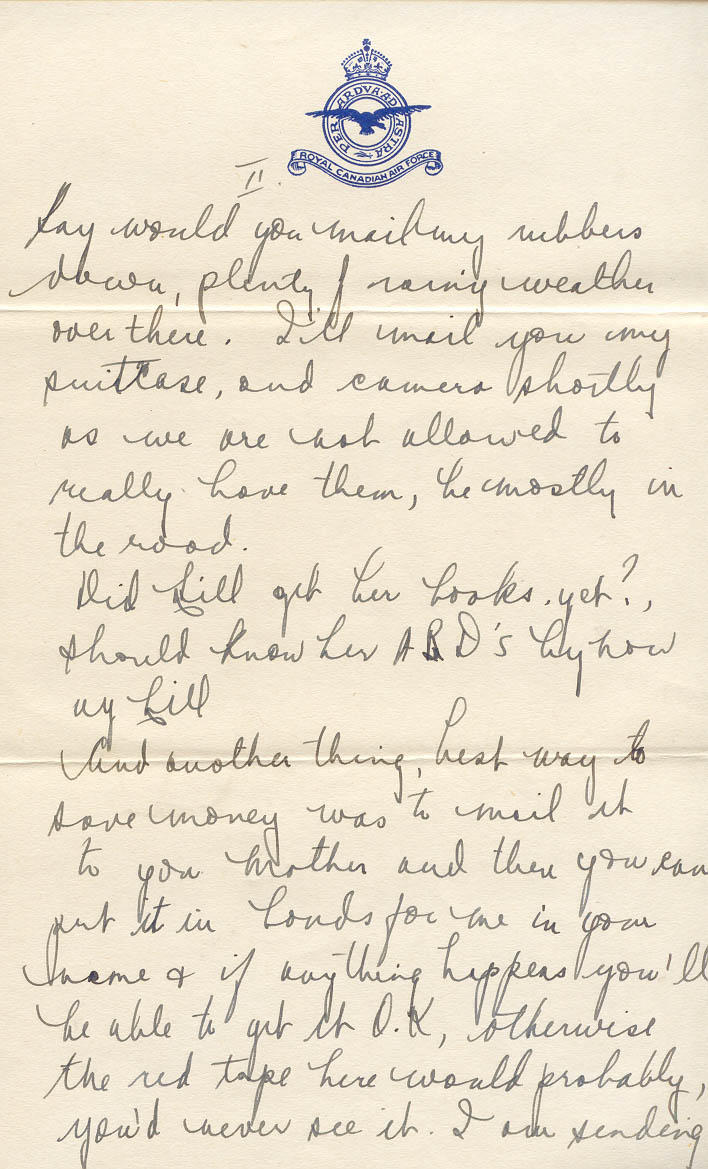 PER ARDVA AD ASTRA
ROYAL CANADIAN AIR FORCE
II.
Say would you mail my rubbers
down, plenty of rainy weather
over there. I'll mail you my
suitcase, and camera shortly
as we are not allowed to
really have them, be mostly in
the road.
Did Lill get her books yet?,
should know her A B D's by now
my Lill
And another thing, best way to
save money was to mail it
to you Mother and then you can
put it in bonds for me in your
name & if anything happens you'll
be able to get it O.K, otherwise
the red tape here would probably,
you'd never see it. I am sending